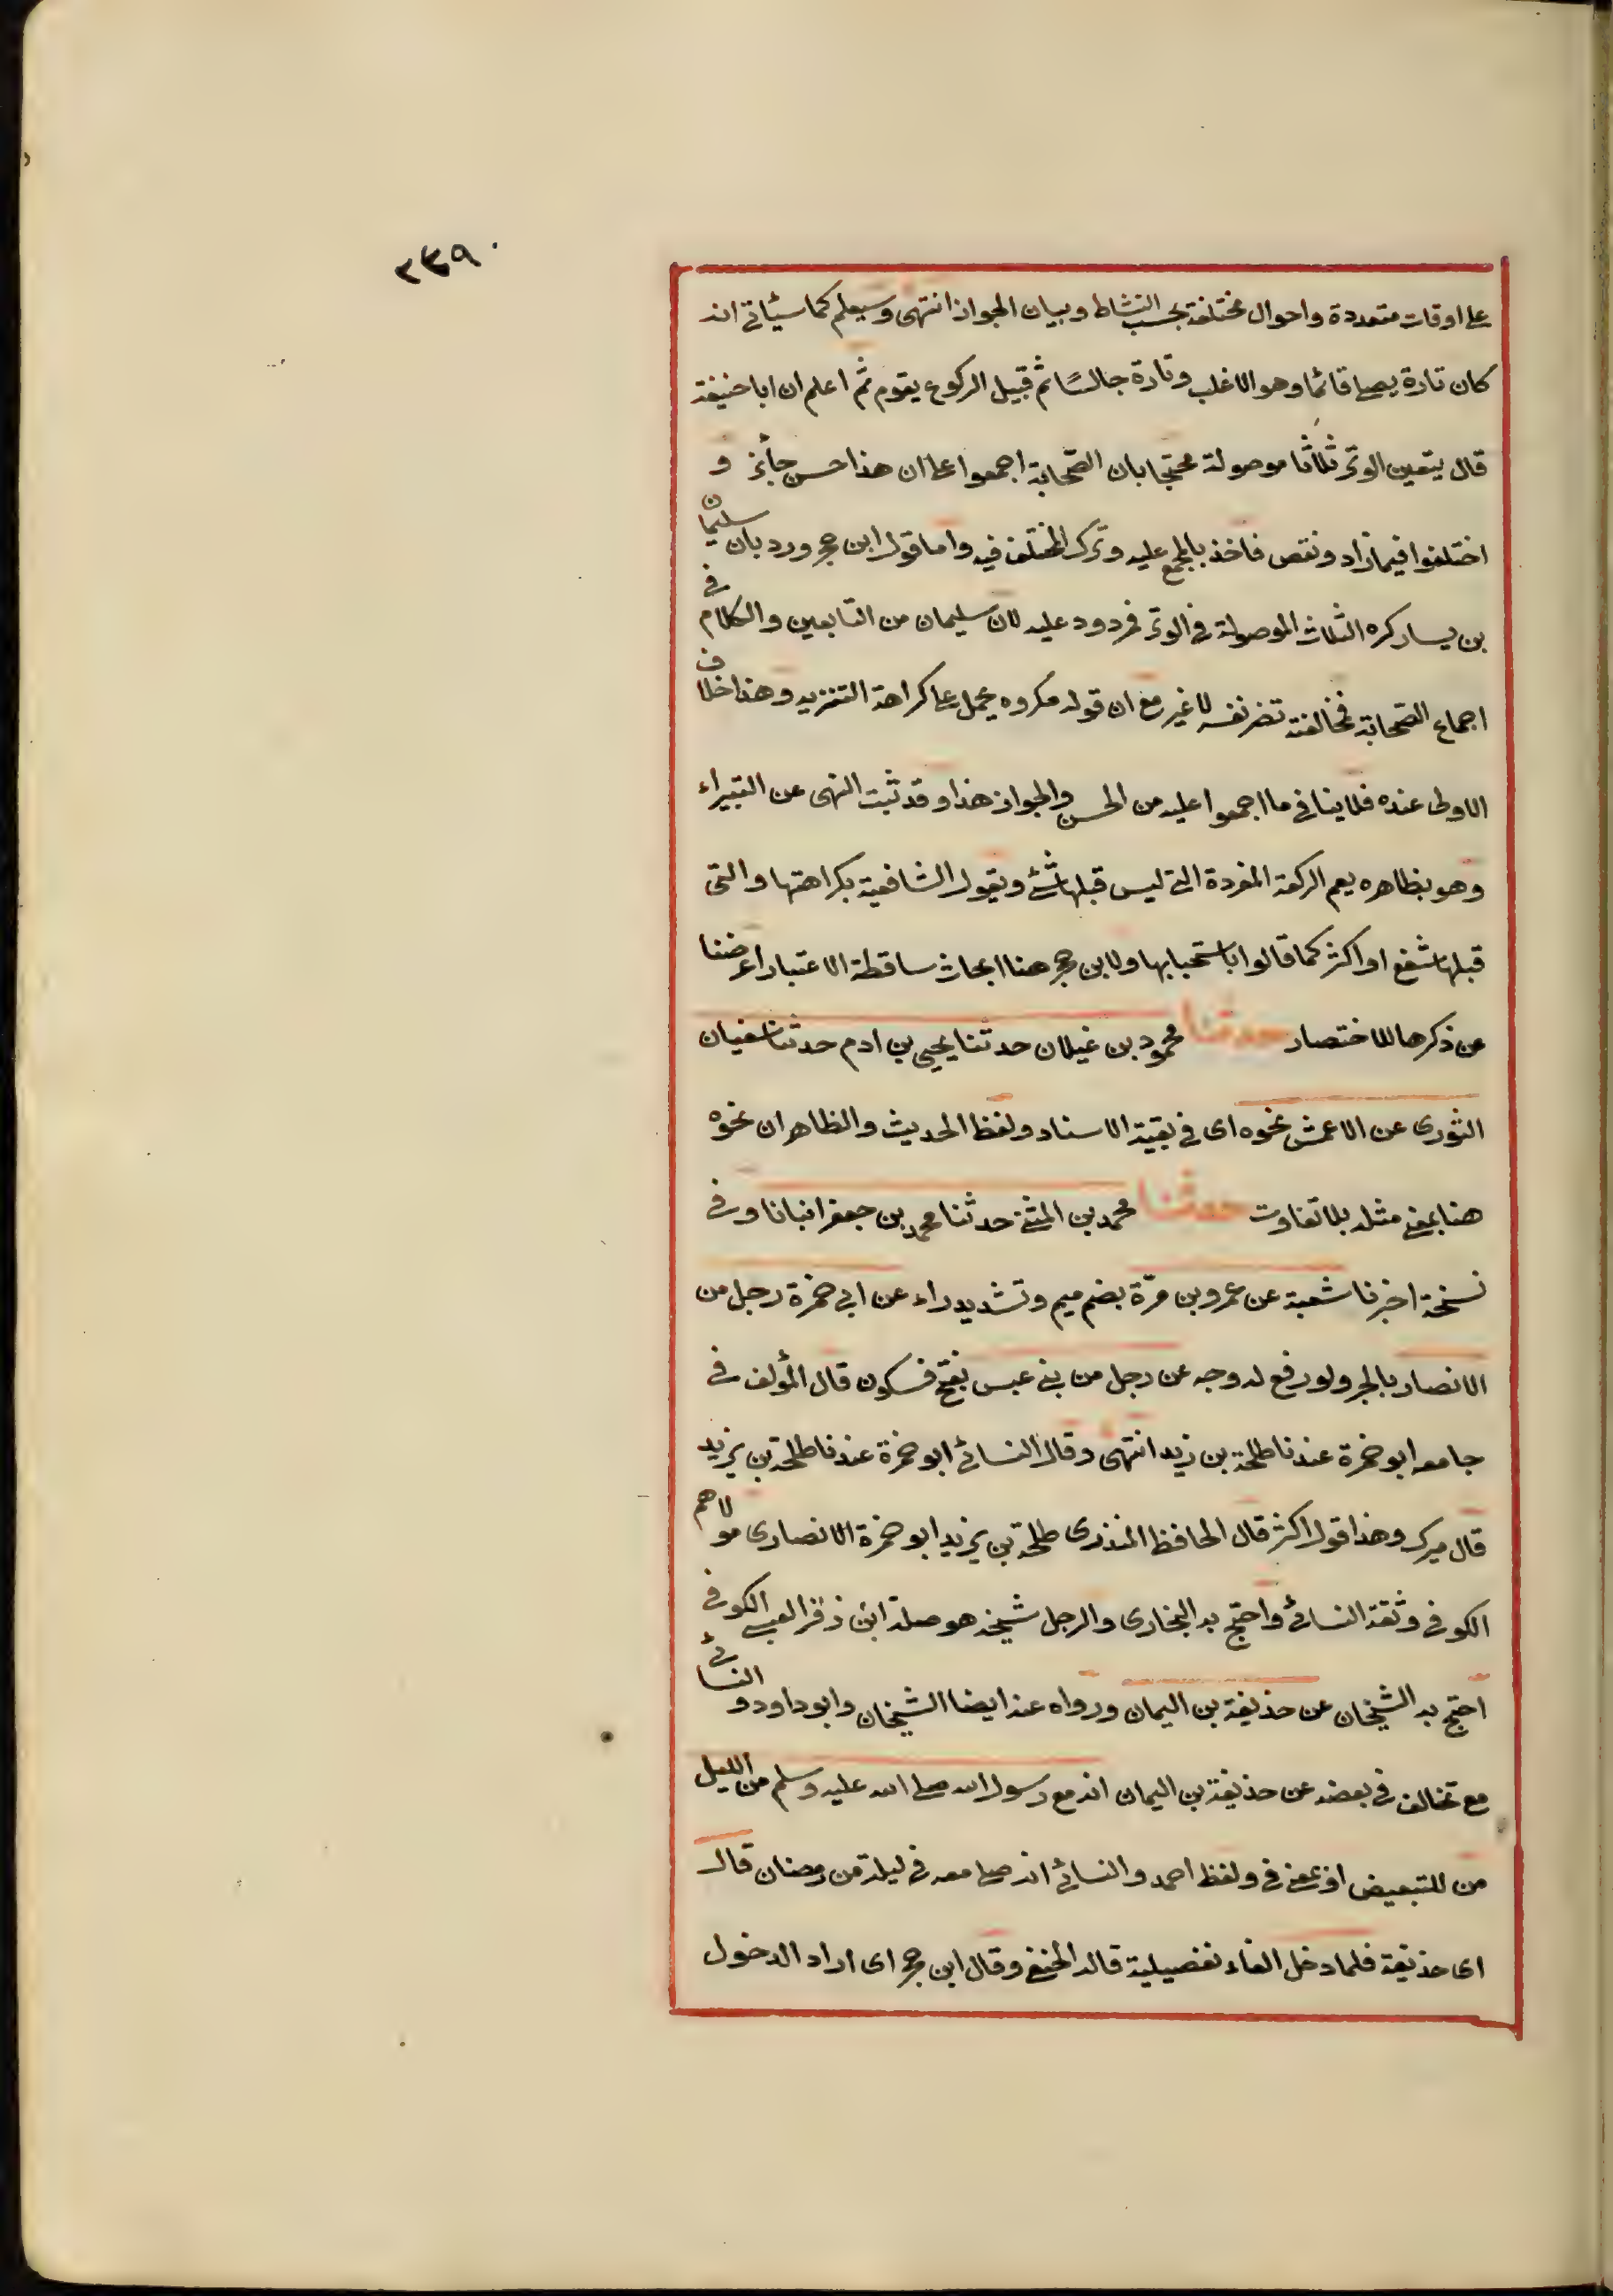 ٢٣٩٠
على اوقات متعددة واحوال مختلفة بحسب النشاط وبيان الجواز انتهى وسيعلم كما سيأتى انه
كان تارة يصلى قائما وهو الاغلب وتارة جالسًا ثم قبيل الركوع يقوم ثم اعلم ان ابا حنيفة
قال يتعين الوتر ثلاثا موصولة محتجا بان الصّحابة اجمعوا على ان هذا حسن جائز و
اختلفوا فيما زاد ونقص فاخذ بالمجمع عليه وترك المختلف فيه واما قول ابن حجر ورد بان سليمان
بن يسار كره الثلاث الموصولة فى الوتر فمردود عليه لان سليمان من التابعين والكلام فى
اجماع الصّحابة فمخالفته تضر نفسه لا غير مع ان قوله مكروه يحمل على كراهة التنزيه وهذا خلاف
الاولى عنده فلا ينافى ما اجمعوا عليه من الحسن والجواز هذا وقد ثبت النهى عن البتيراء
وهو بظاهره يعم الركعة المفردة التى ليس قبلها شئ ويقول الشافعية بكراهتها والتى
قبلها شفع او اكثر كما قالوا باستحبابها ولابن حجر هنا ابحاث ساقطة الاعتبار اعرضنا
عن ذكرها للاختصار حدثنا محمود بن غيلان حدثنا يحيى بن ادم حدثنا سفيان
الثورى عن الاعمش نحوه اى فى بقية الاسناد ولفظ الحديث والظاهر ان نحوه
هنا بمعنى مثله بلا تفاوت حدثنا محمد بن المثنى حدثنا محمد بن جعفر انبانا وفى
نسخة اخبرنا شعبة عن عمرو بن مرّة بضم ميم وتشديد راء عن ابى حمزة رجل من
الانصار بالجر ولو رفع له وجه عن رجل من بنى عبس بفتح فسكون قال المؤلف فى
جامعه ابو حمزة عندنا طلحة بن زيد انتهى وقال النسائى ابو حمزة عندنا طلحة بن يزيد
قال ميرك وهذا قول اكثر قال الحافظ المنذرى طلحة بن يزيد ابو حمزة الانصارى مولاهم
الكوفى وثقة النسائى واحتج به البخارى والرجل شيخه هو صلة ابن زفر العبسى الكوفى
احتج به الشيخان عن حذيفة بن اليمان ورواه عنه ايضا الشيخان وابو داود والنسائى
مع تخالف فى بعضه عن حذيفة بن اليمان انه مع رسول الله صلى الله عليه وسلم من الليل
من للتبعيض او بمعنى فى ولفظ احمد والنسائى انه صلى معه فى ليلة من رمضان قال
اى حذيفة فلما دخل الفاء تفصيلية قاله الحنفى وقال ابن حجر اى اراد الدخول